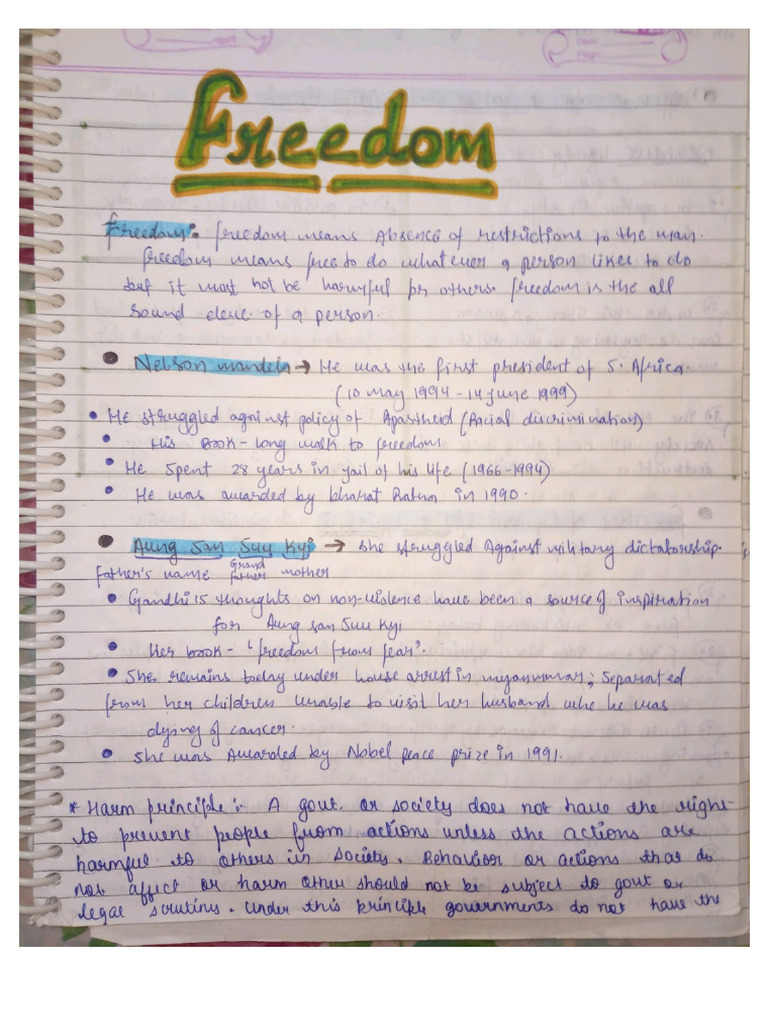 Freedom
Freedom:- freedom means Absence of restrictions to the man.
freedom means free to do whatever a person likes to do
but it must not be harmful for others. freedom is the all
round deve. of a person.
Nelson mandela → He was the first president of S. Africa.
(10 May 1994 - 14 June 1999)
He struggled against policy of Apastheid (Racial discrimination)
His Book - long walk to freedom
He spent 28 years in jail of his life (1966-1994)
He was awarded by bharat Ratna in 1990.
Aung San Suu Kyi → she struggled Against military dictatorship.
father's name Grand father mother
Gandhi's thoughts on non-violence have been a source of inspiration
for Aung san Suu Kyi
Her book - 'freedom from fear'.
She remains today under house arrest in myanmmar; Separated
from her children unable to visit her husband whe he was
dying of cancer.
She was Awarded by Nobel peace prize in 1991.
* Harm principle:- A govt. or society does not have the right
to prevent people from actions unless the actions are
harmful to others in society. Behavior or actions that do
not affect or harm other should not be subject to govt or
legal scrutins. Under this principle governments do not have the